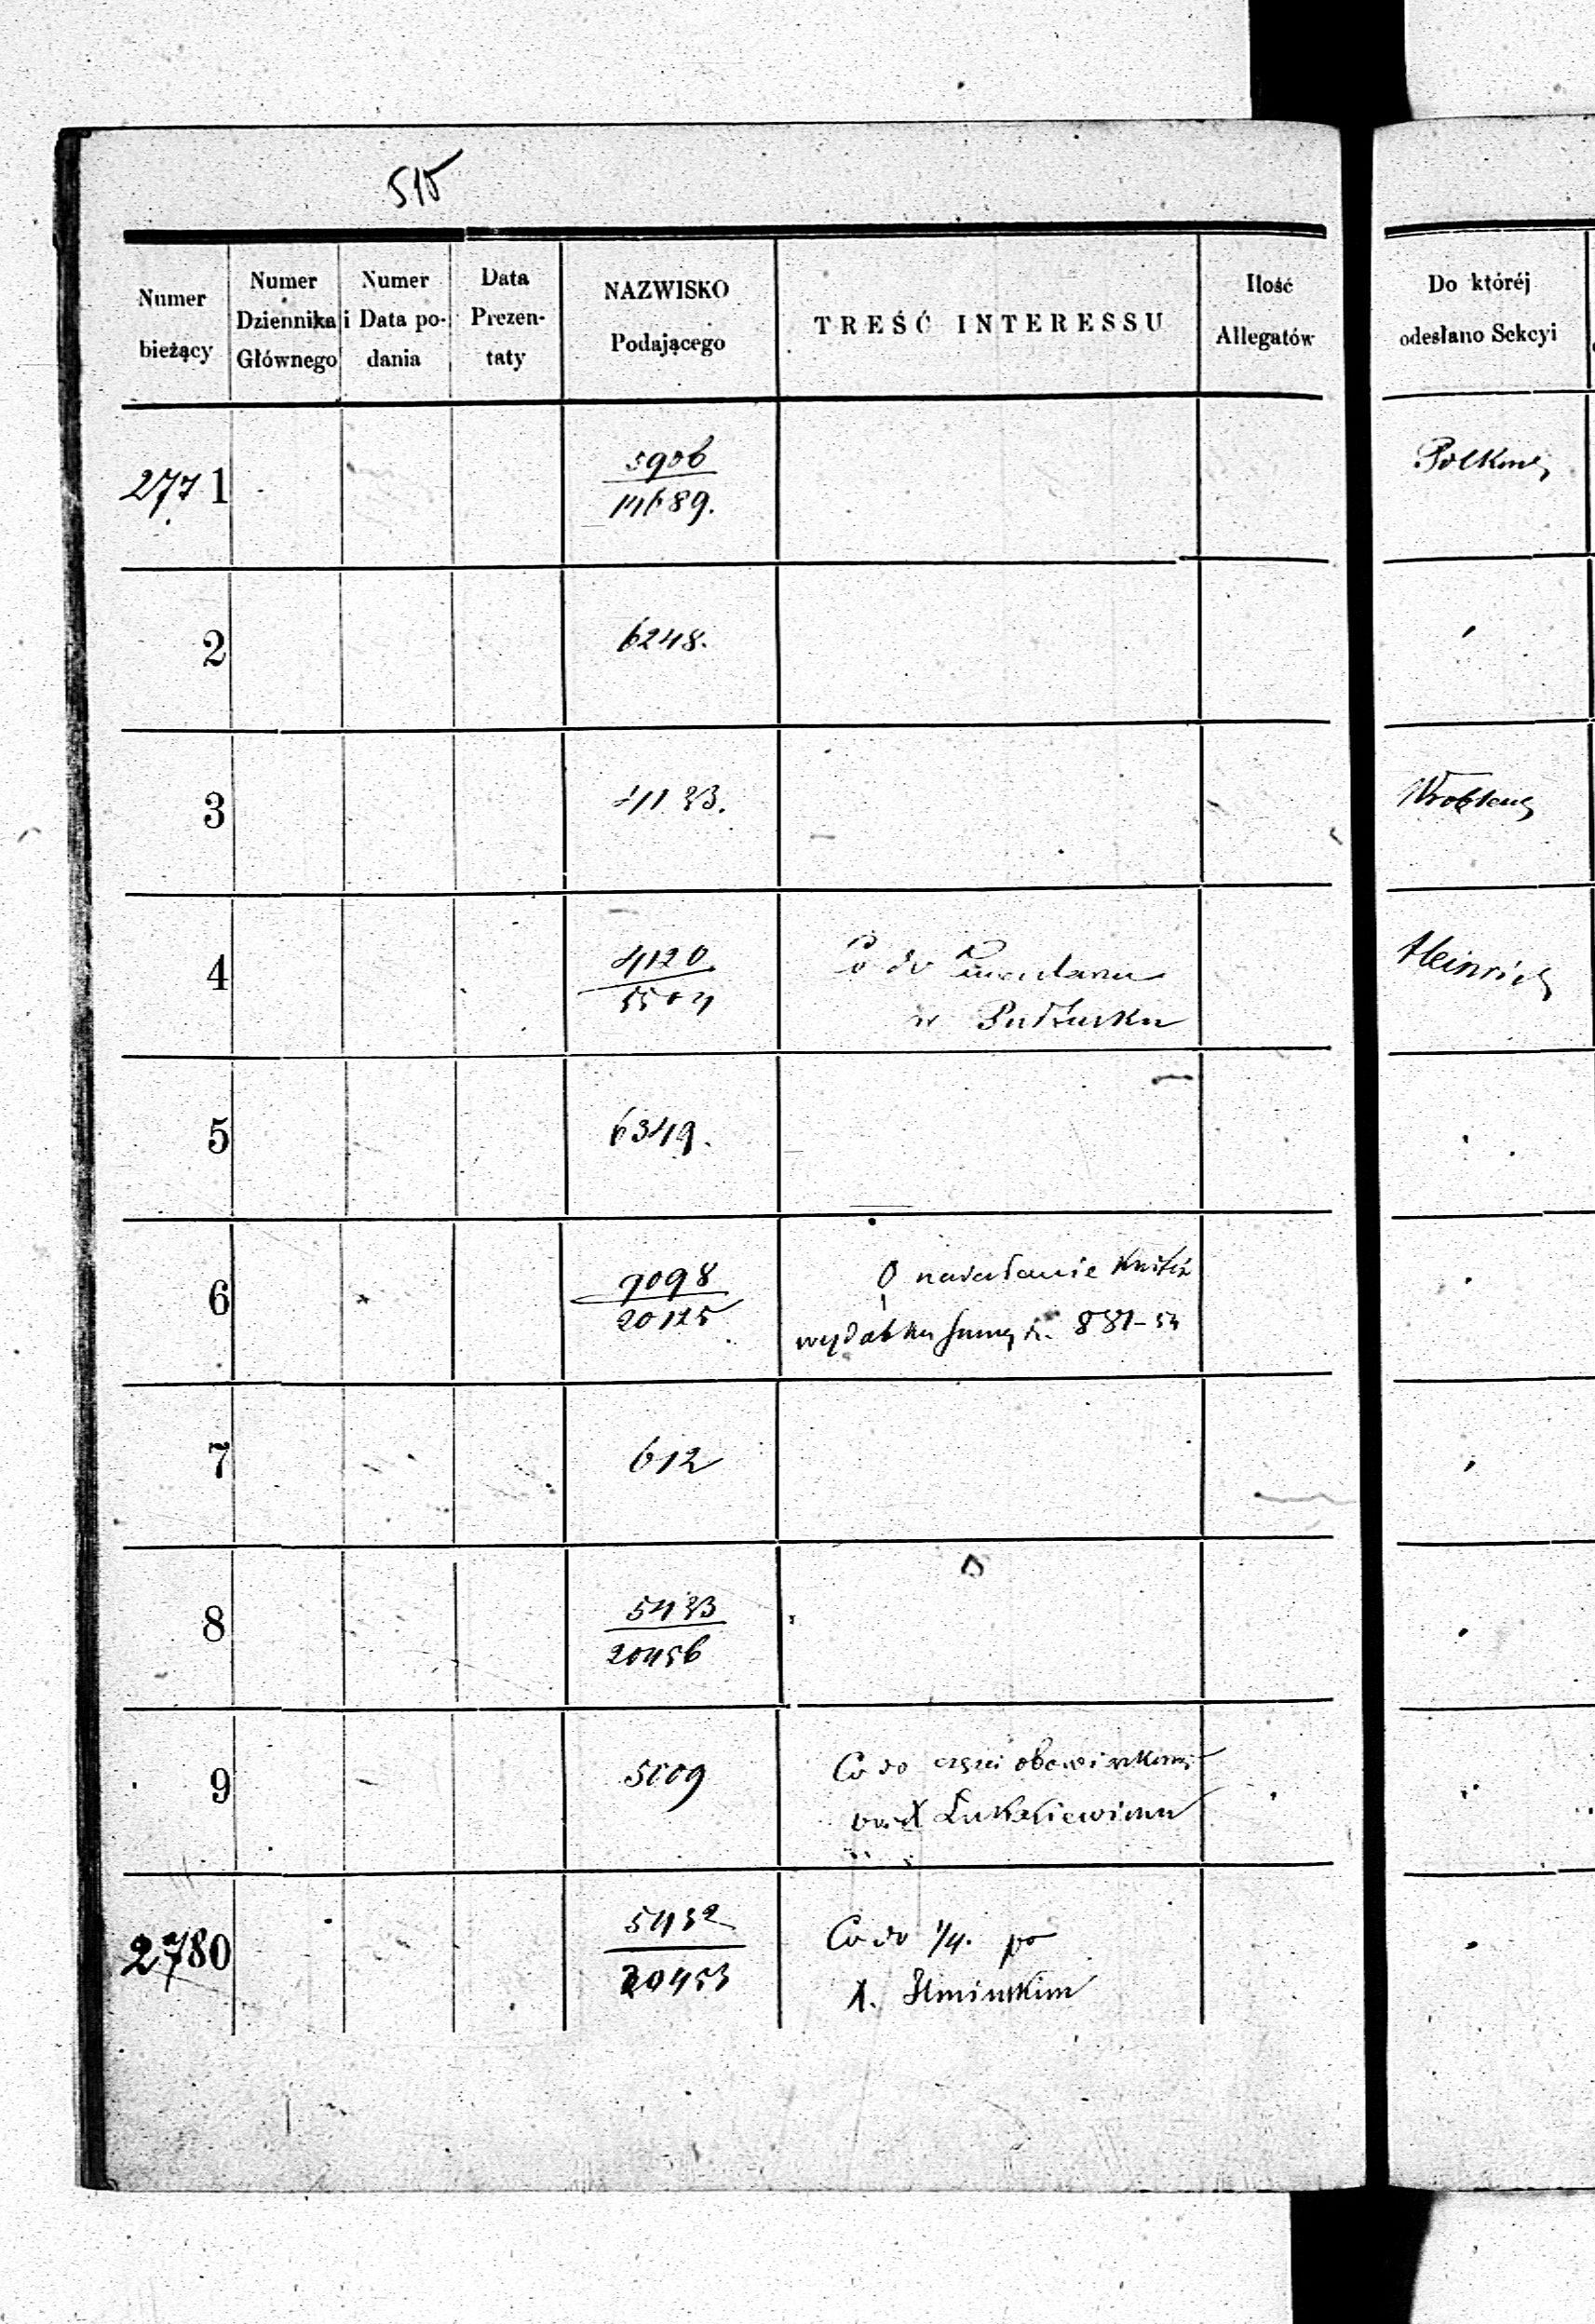 515
Numer bieżący
Numer Dziennika Głównego
Numer i Data podania
Data Prezentaty
NAZWISKO Podającego
TREŚĆ INTERESSU
Ilość Allegatów
Do któréj odesłano Sekcyi
2771
5906
14689.
2
6248.
3
4133.
4
4120
5504
Co do
w Pułtusku
Heinrich
5
6349.
6
7098
20125
O nadesłanie kwitu
wydatku summy r. 881-54
7
612
8
5433
20456
9
5009
Co do części
Łukasiewiczu
2780
5432
20453
Co do 1/4. po
X.